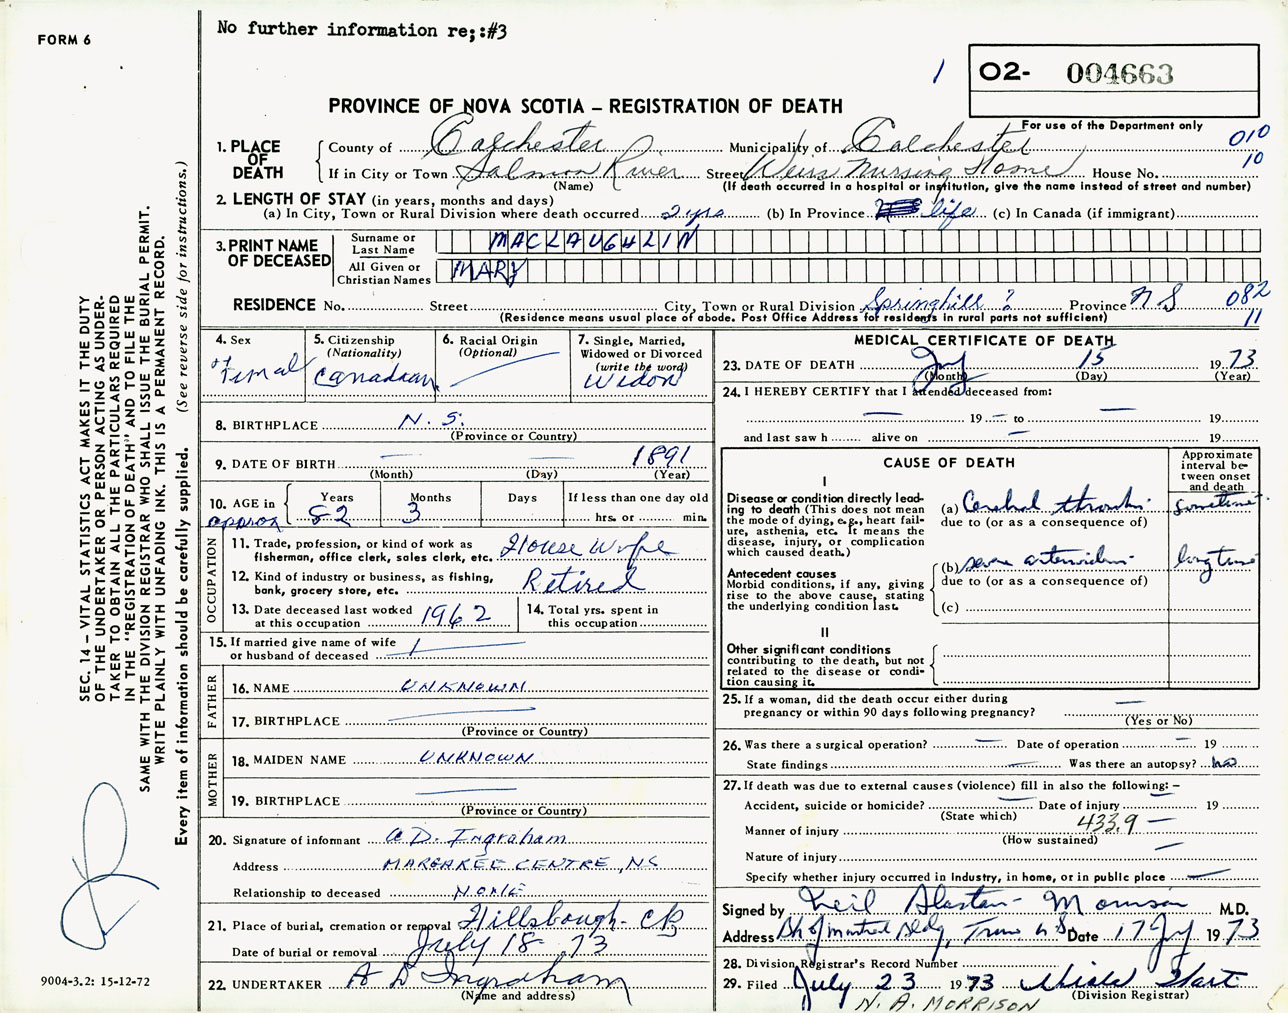 No further information re;:#3
FORM 6
1
O2- 004663
PROVINCE OF NOVA SCOTIA – REGISTRATION OF DEATH
For use of the Department only
010
10
1. PLACE OF DEATH
County of Colchester Municipality of Colchester
If in City or Town Salmon River Street Weirs Nursing Home House No.
(Name) (If death occurred in a hospital or institution, give the name instead of street and number)
2. LENGTH OF STAY (in years, months and days)
(a) In City, Town or Rural Division where death occurred 2 yrs (b) In Province life (c) In Canada (if immigrant)
3. PRINT NAME OF DECEASED
Surname or Last Name MACLAUGHLIN
All Given or Christian Names MARY
RESIDENCE No. Street City, Town or Rural Division Springhill ? Province N S 082
11
(Residence means usual place of abode. Post Office Address for residents in rural parts not sufficient)
4. Sex Femal
5. Citizenship (Nationality) Canadian
6. Racial Origin (Optional)
7. Single, Married, Widowed or Divorced (write the word) Widow
8. BIRTHPLACE N. S.
(Province or Country)
9. DATE OF BIRTH 1891
(Month) (Day) (Year)
10. AGE in Years Months Days If less than one day old
approx 82 3 hrs. or min.
OCCUPATION
11. Trade, profession, or kind of work as fisherman, office clerk, sales clerk, etc. House Wife
12. Kind of industry or business, as fishing, bank, grocery store, etc. Retired
13. Date deceased last worked at this occupation 1962
14. Total yrs. spent in this occupation
15. If married give name of wife or husband of deceased
FATHER
16. NAME UNKNOWN
17. BIRTHPLACE
(Province or Country)
MOTHER
18. MAIDEN NAME UNKNOWN
19. BIRTHPLACE
(Province or Country)
20. Signature of informant A D. Ingraham
Address MARGAREE CENTRE, NS
Relationship to deceased NONE
21. Place of burial, cremation or removal Hillsbough
Date of burial or removal July 18, 73
22. UNDERTAKER A D Ingraham
(Name and address)
MEDICAL CERTIFICATE OF DEATH
23. DATE OF DEATH July 15 1973
(Month) (Day) (Year)
24. I HEREBY CERTIFY that I attended deceased from:
19 – to 19
and last saw h alive on 19
CAUSE OF DEATH
Approximate interval between onset and death
I
Disease or condition directly leading to death (This does not mean the mode of dying, e.g., heart failure, asthenia, etc. It means the disease, injury, or complication which caused death.)
(a) Cerebral thrombosis sometime
due to (or as a consequence of)
Antecedent causes
Morbid conditions, if any, giving rise to the above cause, stating the underlying condition last.
(b) severe longtime
due to (or as a consequence of)
(c)
II
Other significant conditions contributing to the death, but not related to the disease or condition causing it.
25. If a woman, did the death occur either during pregnancy or within 90 days following pregnancy?
(Yes or No)
26. Was there a surgical operation? Date of operation 19
State findings Was there an autopsy? no
27. If death was due to external causes (violence) fill in also the following: –
Accident, suicide or homicide? Date of injury 19
(State which)
Manner of injury 433.9 –
(How sustained)
Nature of injury
Specify whether injury occurred in industry, in home, or in public place
Signed by Neil Alastair Morrison M.D.
Address Bk of Montreal Bldg, Truro N S. Date 17 July 1973
28. Division Registrar's Record Number
29. Filed July 23 1973 Hart
(Division Registrar)
N. A. MORRISON
SEC. 14 – VITAL STATISTICS ACT MAKES IT THE DUTY
OF THE UNDERTAKER OR PERSON ACTING AS UNDERTAKER TO OBTAIN ALL THE PARTICULARS REQUIRED
IN THE "REGISTRATION OF DEATH" AND TO FILE THE
SAME WITH THE DIVISION REGISTRAR WHO SHALL ISSUE THE BURIAL PERMIT.
WRITE PLAINLY WITH UNFADING INK. THIS IS A PERMANENT RECORD.
Every item of information should be carefully supplied. (See reverse side for instructions.)
9004-3.2: 15-12-72